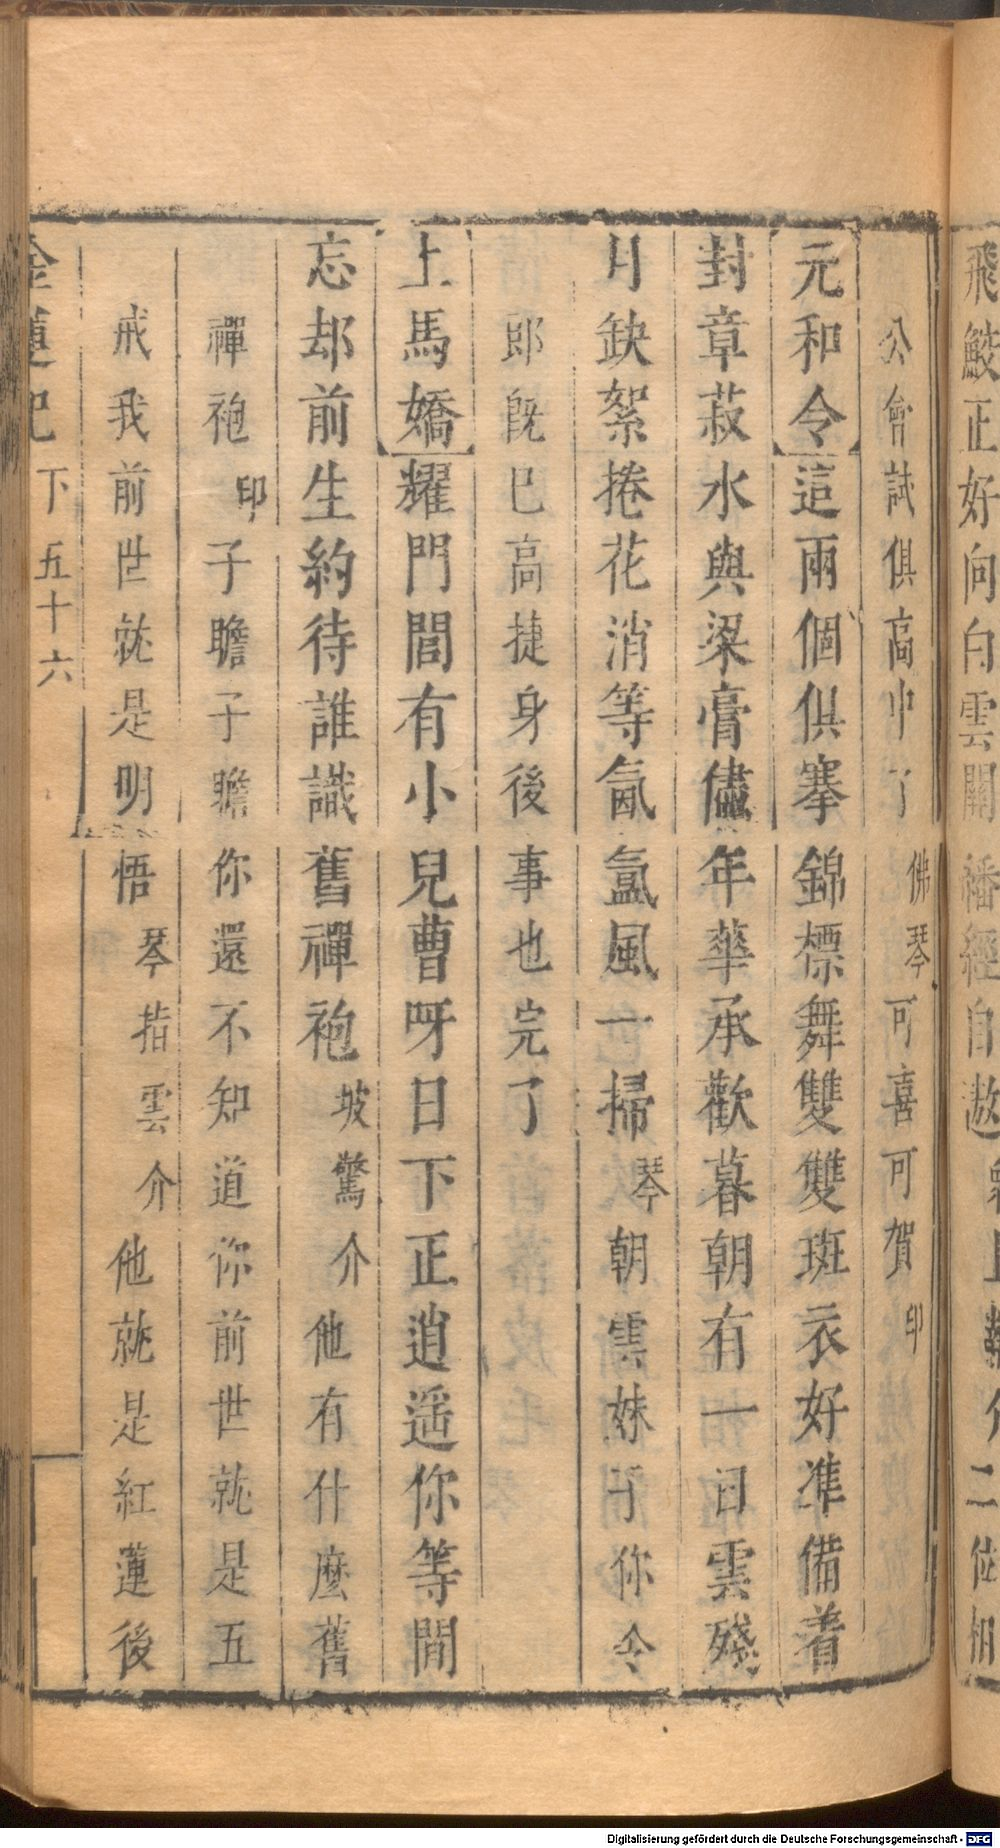 飛鮫正好向白雲關繙經自遨
公會試俱高中了佛琴可喜可賀印
元和令這兩個俱搴錦標舞雙雙斑衣好準備着
封章菽水與梁膏儘年華承歡暮朝有一日雲殘
月缺絮捲花消等氤氳風一掃琴朝雲妹子你令
郎既已高捷身後事也完了
上馬嬌耀門閭有小兒曹呀日下正逍遥你等閒
忘却前生約待誰識舊禪袍坡驚介他有什麽舊
禪袍印子瞻子瞻你還不知道你前世就是五
戒我前世就是明悟琴指雲介他就是紅蓮後
金蓮記 下 五十六
Digitalisierung gefördert durch die Deutsche Forschungsgemeinschaft - DFG